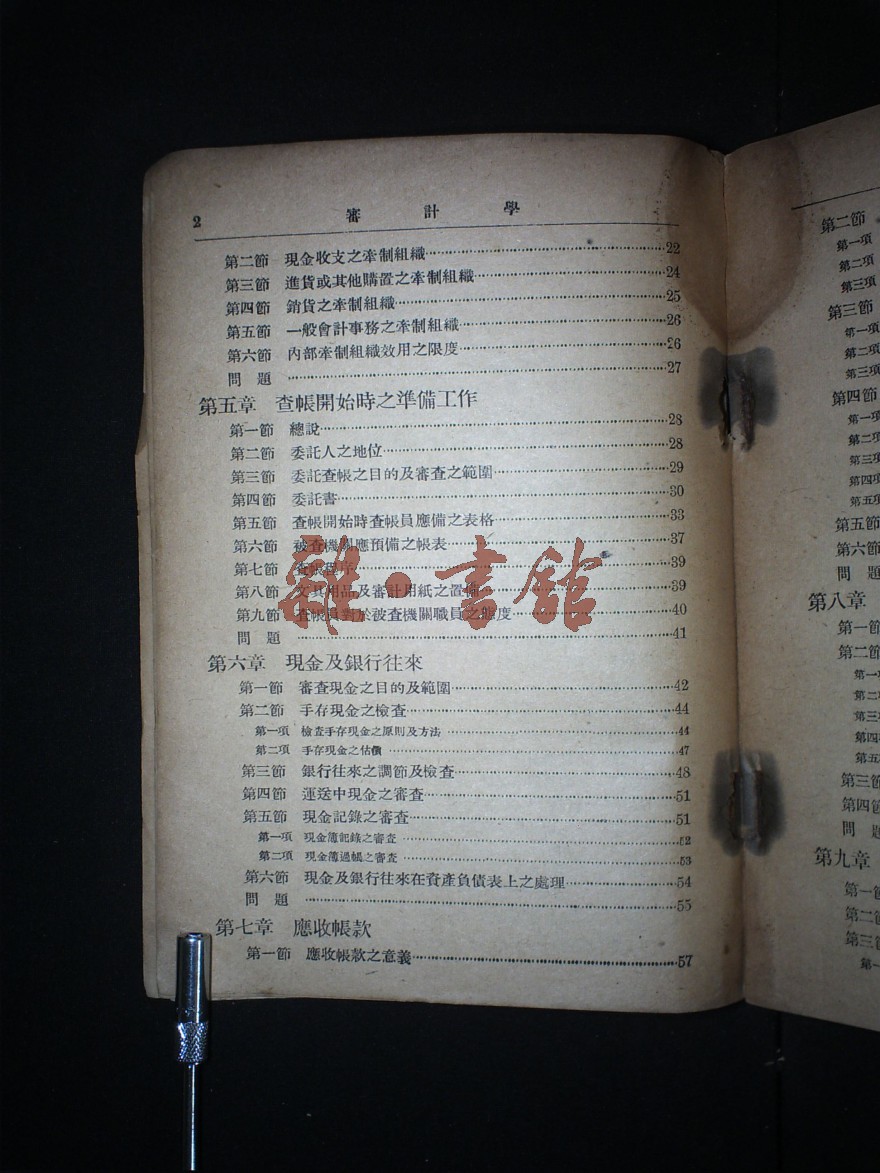 2 審計學
第二節 現金收支之牽制組織……22
第三節 進貨或其他購置之牽制組織……24
第四節 銷貨之牽制組織……25
第五節 一般會計事務之牽制組織……26
第六節 內部牽制組織效用之限度……26
問題……27
第五章 查帳開始時之準備工作
第一節 總說……28
第二節 委託人之地位……28
第三節 委託查帳之目的及審查之範圍……29
第四節 委託書……30
第五節 查帳開始時查帳員應備之表格……33
第六節 被查機關應預備之帳表……37
第七節 查帳程序……39
第八節 文具用品及審計用紙之置備……39
第九節 查帳員對於被查機關職員之態度……40
問題……41
第六章 現金及銀行往來
第一節 審查現金之目的及範圍……42
第二節 手存現金之檢查……44
第一項 檢查手存現金之原則及方法……44
第二項 手存現金之估價……47
第三節 銀行往來之調節及檢查……48
第四節 運送中現金之審查……51
第五節 現金記錄之審查……51
第一項 現金簿記錄之審查……52
第二項 現金簿過帳之審查……53
第六節 現金及銀行往來在資產負債表上之處理……54
問題……55
第七章 應收帳款
第一節 應收帳款之意義……57
雜·書館
第二節
第一項
第二項
第三項
第三節
第一項
第二項
第三項
第四節
第一項
第二項
第三項
第四項
第五項
第五節
第六節
問題
第八章
第一節
第二節
第一項
第二項
第三項
第四項
第五項
第三節
第四節
問題
第九章
第一節
第二節
第三節
第一